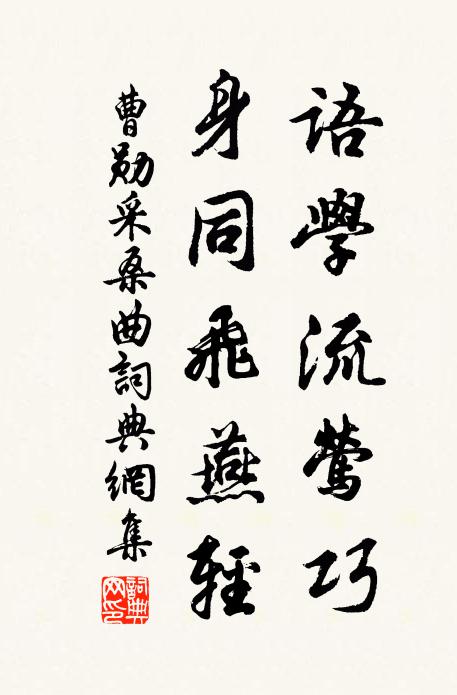 語學流鶯巧
身同飛燕輕
曹勛采桑曲詞典網集
詞典网印